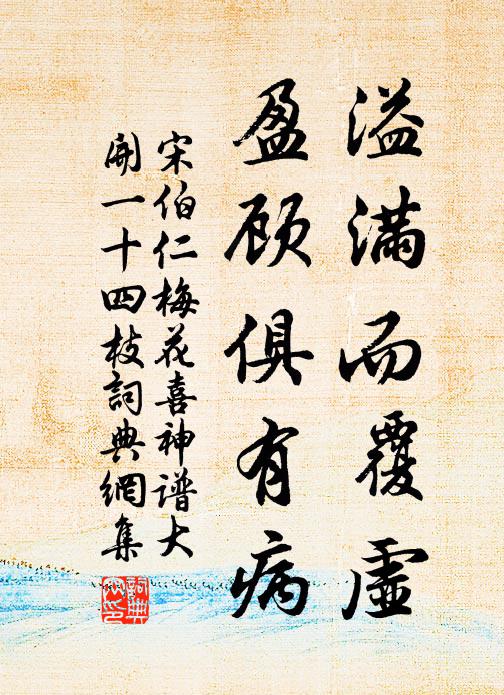 溢满而覆虚
盈顾俱有病
宋伯仁梅花喜神谱大
開一十四枝詞典網集